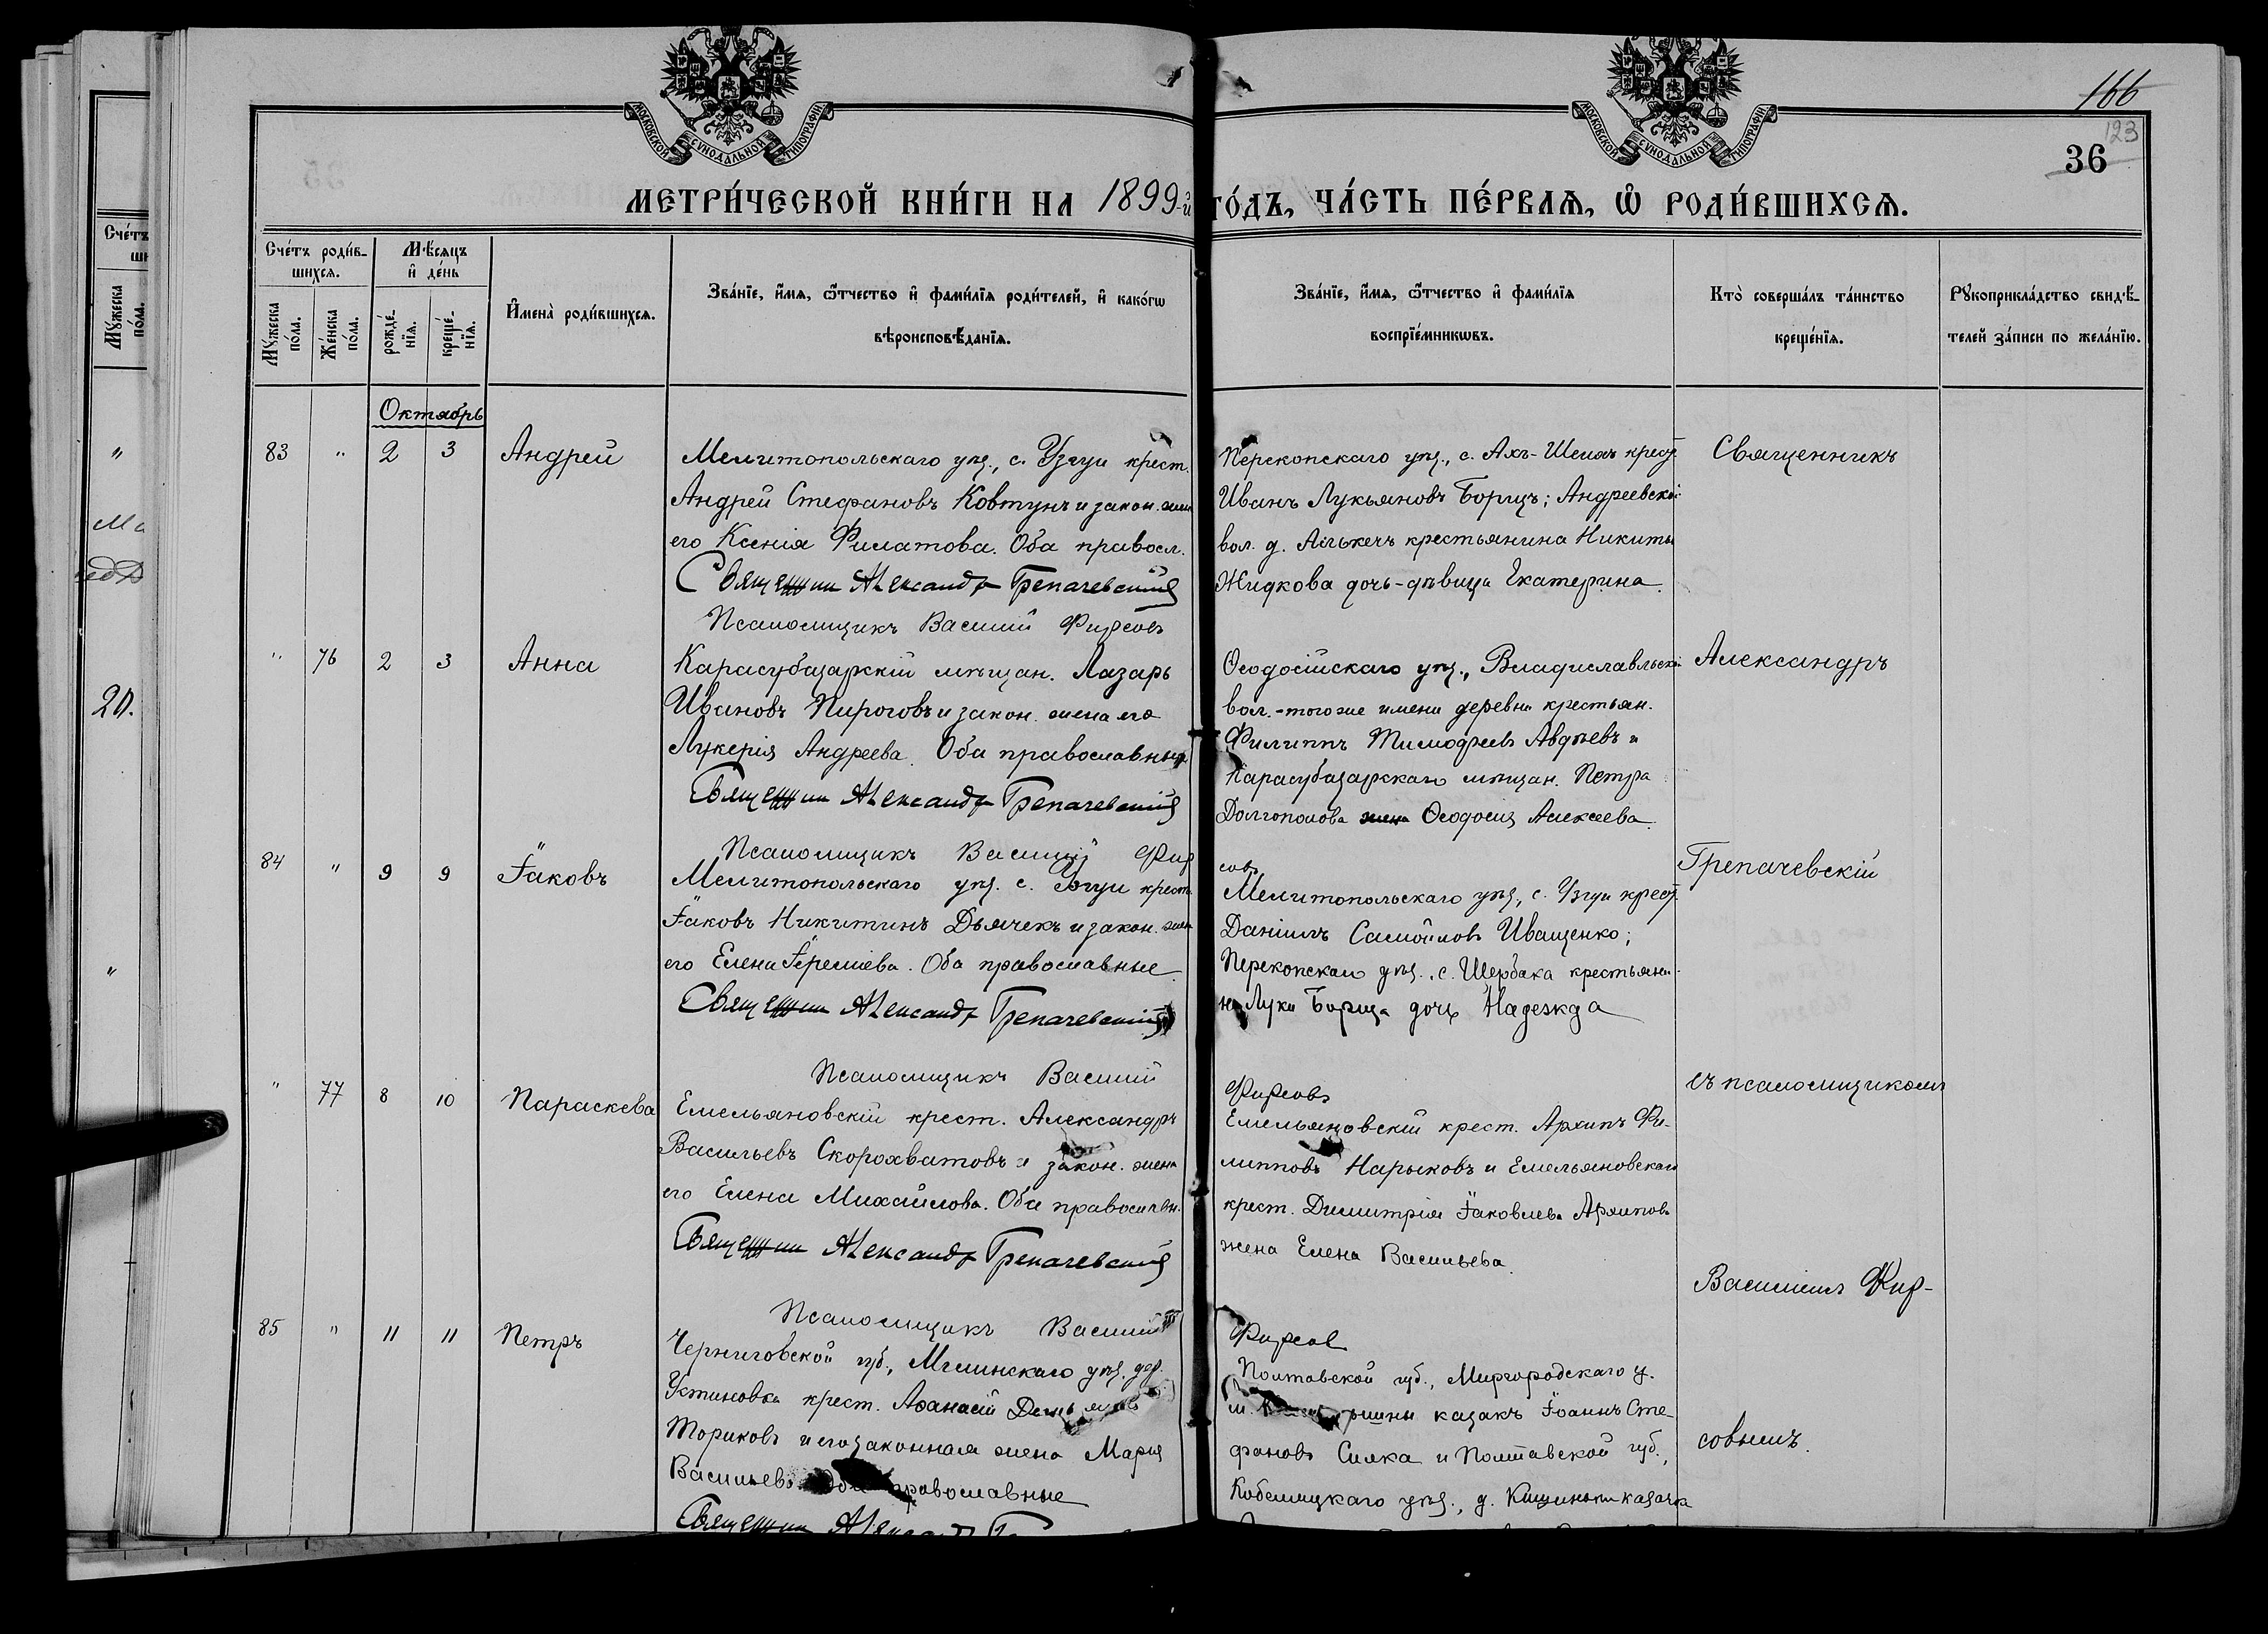 МОСКОВСКОЙ СѴНОДАЛЬНОЙ ТИПОГРАФІИ
МОСКОВСКОЙ СѴНОДАЛЬНОЙ ТИПОГРАФІИ
166
123
36
МЕТРИ́ЧЕСКОЙ КНИ́ГИ НА 1899-й ГО́ДЪ, ЧА́СТЬ ПЕ́РВАѦ, Ѡ҆ РОДИ́ВШИХСѦ.
Сче́тъ роди́в-
шихсѧ.
Мꙋ́жеска по́ла.
Же́нска по́ла.
Мѣ́сѧцъ
и҆ де́нь
рожде́-нїѧ.
креще́-нїѧ.
И҆мена̀ роди́вшихсѧ.
Зва́нїе, и҆́мѧ, ѻ҆́тчество и҆ фами́лїѧ роди́телей, и҆ како́гѡ
вѣроисповѣ́данїѧ.
Зва́нїе, и҆́мѧ, ѻ҆́тчество и҆ фами́лїѧ
воспрїе́мникѡвъ.
Кто̀ соверша́лъ та́инство
креще́нїѧ.
Рꙋкоприкла́дство свидѣ́-
телей за́писи по жела́нїю.
Октябрь
83 " 2 3 Андрей
Мелитопольскаго уѣз., с. Узгуи крест.
Андрей Стефановъ Ковтунъ и закон. жена
его Ксенія Филатова. Оба правосл.
Священник Александр Грепачевский
Псаломщикъ Василий Фирсовъ
Перекопскаго уѣз., с. Ахъ-Шеихъ крест.
Иванъ Лукьяновъ Борщъ; Андреевской
вол. д. Алькечъ крестьянина Никиты
Жидкова дочь-дѣвица Екатерина.
Священникъ
" 76 2 3 Анна
Карасубазарскій мѣщан. Лазарь
Ивановъ Пироговъ и закон. жена его
Лукерія Андреева. Оба православные
Священник Александр Грепачевский
Псаломщикъ Василий Фирсовъ
Ѳеодосійскаго уѣз., Владиславльской
вол.-тогоже имени деревни крестьян.
Филиппъ Тимофеевъ Авдѣевъ и
Карасубазарскаго мѣщан. Петра
Долгополова жена Ѳеодосія Алексеева.
Александръ
84 " 9 9 Іаковъ
Мелитопольскаго уѣз. с. Узгуи крест.
Іаковъ Никитинъ Дьячекъ и закон. жена
его Елена Іереміева. Оба православные
Священник Александр Грепачевский
Псаломщикъ Василий Фирсовъ
Мелитопольскаго уѣз., с. Узгуи крест.
Даніилъ Самойловъ Иващенко;
Перекопскаго уѣз., с. Щербака крестьяни-
на Луки Борща дочь Надежда
Грепачевскій
" 77 8 10 Параскева
Емельяновскій крест. Александръ
Васильевъ Скорохватовъ и закон. жена
его Елена Михайлова. Оба православн.
Священник Александр Грепачевский
Псаломщикъ Василий Фирсов
Емельяновскій крест. Архипъ Фи-
липповъ Нарыковъ и Емельяновскаго
крест. Димитрія Іаковлева Архипова
жена Елена Васильева.
съ псаломщикомъ
Василіемъ Фир-
85 " 11 11 Петръ
Черниговской губ., Мглинскаго уѣз. дер.
Устиновка крест. Аѳанасій
Ториковъ и его законная жена Марія
Васильева. Оба православные
Священник Александр
Полтавской губ., Миргородскаго у.
м. казакъ Іоаннъ Сте-
фановъ Силка и Полтавской губ.,
Кобеляцкаго уѣз., д. Кишиньки казачка
совымъ.